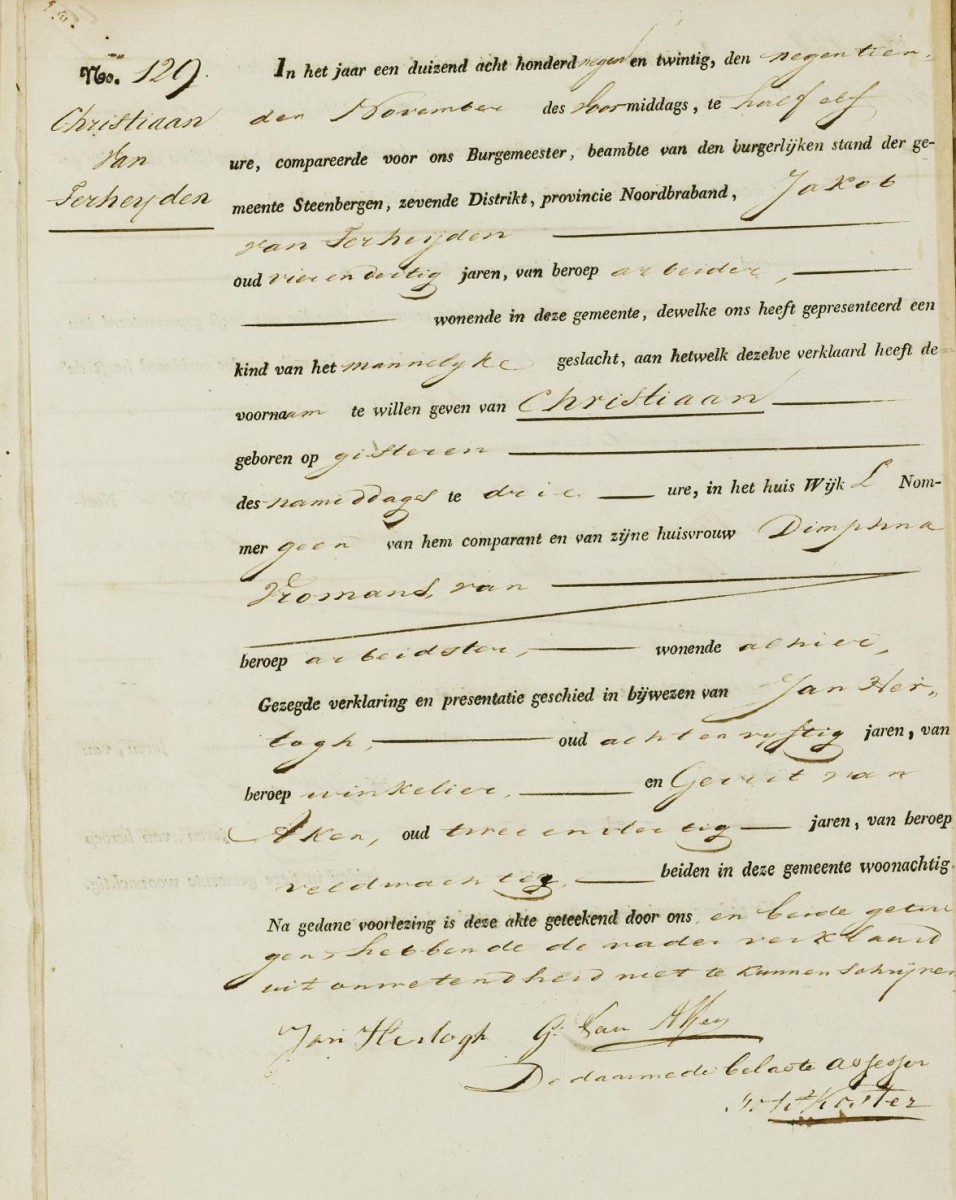 No. 129.
Christiaan
Van
Terheyden
In het jaar een duizend acht honderd negen en twintig, den negentien-
den November des Voormiddags, te half elf
ure, compareerde voor ons Burgemeester, beambte van den burgerlijken stand der ge-
meente Steenbergen, zevende Distrikt, provincie Noordbraband, Jakob
van Terheyden
oud vierendertig jaren, van beroep arbeider,
wonende in deze gemeente, dewelke ons heeft gepresenteerd een
kind van het mannelyke geslacht, aan hetwelk dezelve verklaard heeft den
voornaam te willen geven van Christiaan
geboren op gisteren
des namiddags te drie ure, in het huis Wijk L Nom-
mer geen van hem comparant en van zijne huisvrouw Dimphna
Vromans, van
beroep arbeidster, wonende alhier,
Gezegde verklaring en presentatie geschied in bijwezen van Jan Her-
togh, oud achtenvyftig jaren, van
beroep winkelier, en Gerrit van
Aken, oud tweeendertig jaren, van beroep
veldwachter, beiden in deze gemeente woonachtig
Na gedane voorlezing is deze akte geteekend door ons en beide getui
gen hebbende de vader verklaard
uit onwetendheid niet te kunnen schrijven
Jan Hertogh G. Van Aken
De daarmede belaste assessor
Koster